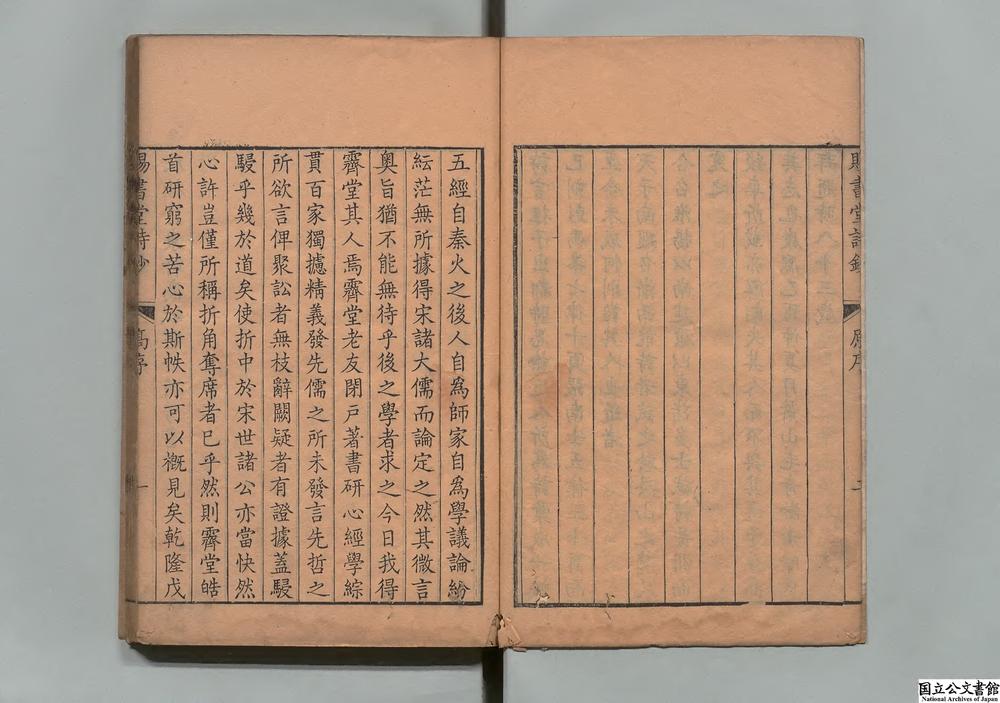 賜書堂詩鈔
原序
二
五經自秦火之後人自爲師家自爲學議論紛
紜茫無所據得宋諸大儒而論定之然其微言
奧旨猶不能無待乎後之學者求之今日我得
霽堂其人焉霽堂老友閉戶著書研心經學綜
貫百家獨攄精義發先儒之所未發言先哲之
所欲言俾聚訟者無枝辭闕疑者有證據蓋駸
駸乎幾於道矣使折中於宋世諸公亦當快然
心許豈僅所稱折角奪席者已乎然則霽堂皓
首研窮之苦心於斯帙亦可以槪見矣乾隆戊
賜書堂詩鈔
高序
一
国立公文書館
National Archives of Japan